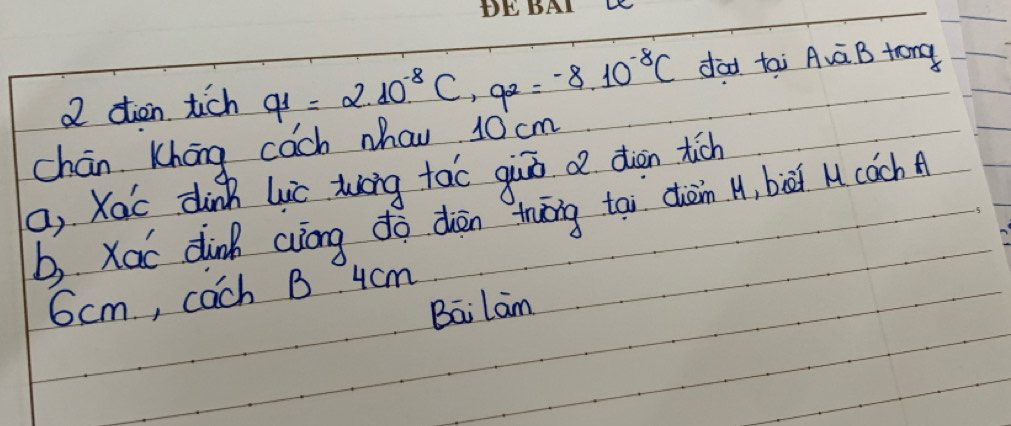 ĐỀ BÀI
2 điện tích q1 = 2.10⁻⁸ C, q2 = -8.10⁻⁸C đặt tại A và B trong
chân không cách nhau 10cm
a, Xác định lực tương tác giữa 2 điện tích
b, Xác định cường độ điện trường tại điểm M, biết M cách A
6cm, cách B 4cm
Bài làm